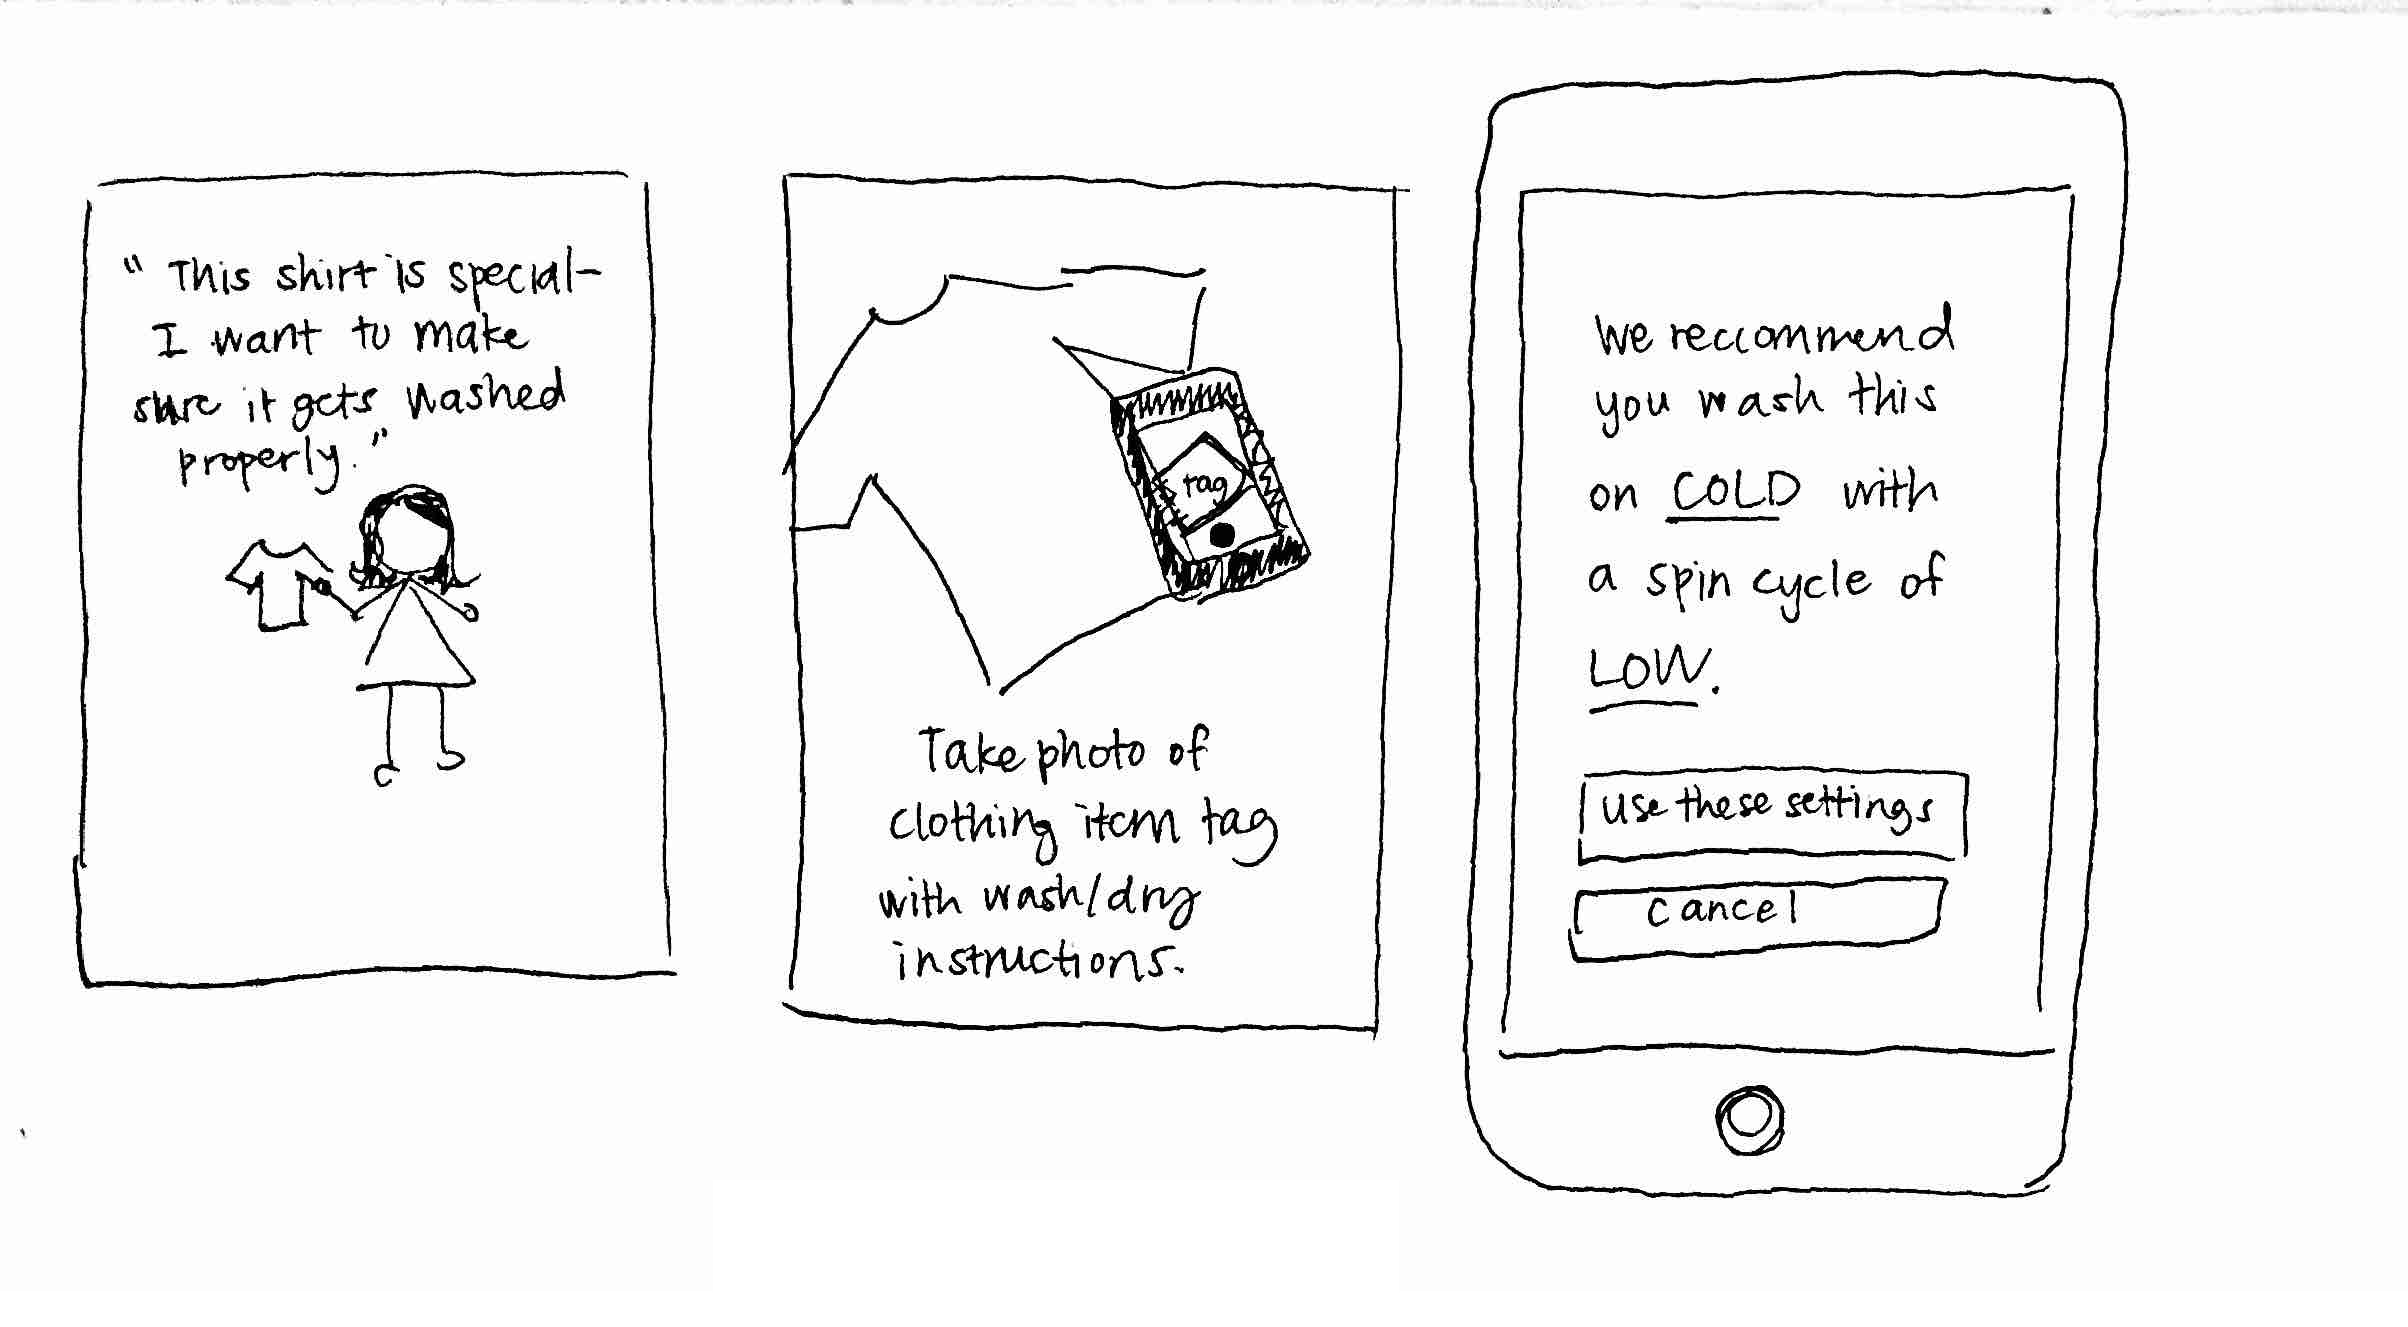 "This shirt is special-
I want to make
sure it gets washed
properly."
tag
Take photo of
clothing item tag
with wash/dry
instructions.
We reccommend
you wash this
on COLD with
a spin cycle of
LOW.
use these settings
cancel